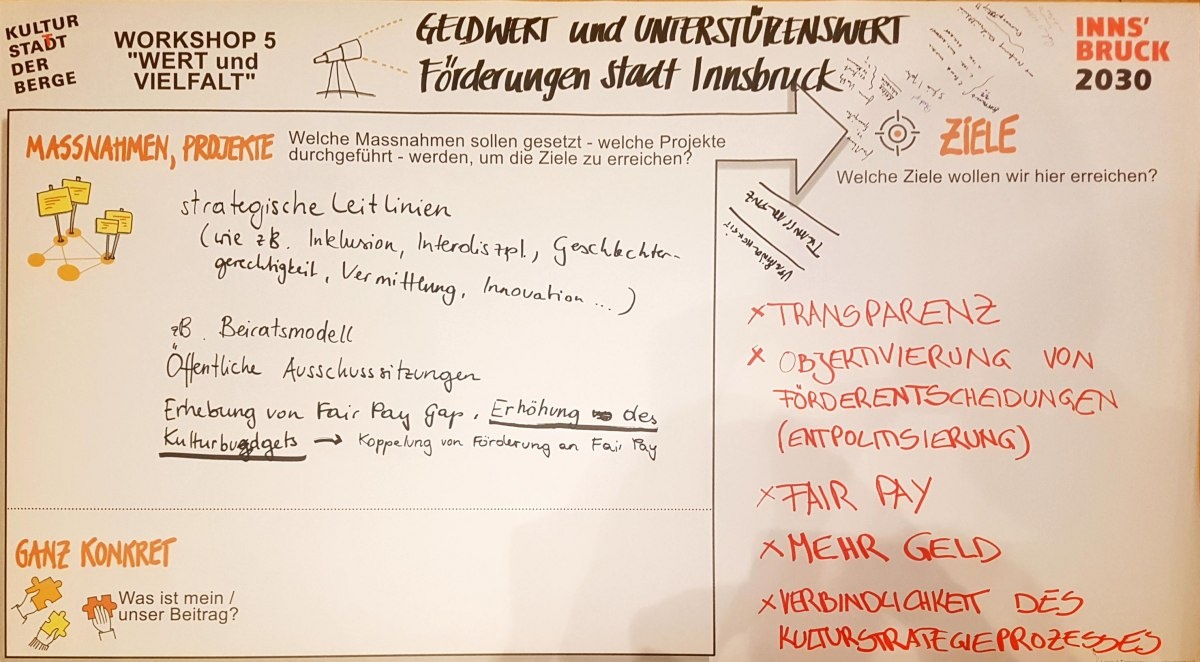 KULTUR
STADT
DER
BERGE
WORKSHOP 5
"WERT und
VIELFALT"
GELDWERT und UNTERSTÜTZENSWERT
Förderungen Stadt Innsbruck
INNS'
BRUCK
2030
MASSNAHMEN, PROJEKTE
Welche Massnahmen sollen gesetzt - welche Projekte
durchgeführt - werden, um die Ziele zu erreichen?
strategische Leitlinien
(wie zB. Inklusion, Interdiszpl., Geschlechter-
gerechtigkeit, Vermittlung, Innovation...)
zB. Beiratsmodell
Öffentliche Ausschusssitzungen
Erhebung von Fair Pay Gap, Erhöhung des
Kulturbudgets → Koppelung von Förderung an Fair Pay
GANZ KONKRET
Was ist mein /
unser Beitrag?
ZIELE
Welche Ziele wollen wir hier erreichen?
TRANSPARENZ
VERBINDLICHKEIT
x TRANSPARENZ
x OBJEKTIVIERUNG VON
FÖRDERENTSCHEIDUNGEN
(ENTPOLITISIERUNG)
x FAIR PAY
x MEHR GELD
x VERBINDLICHKEIT DES
KULTURSTRATEGIEPROZESSES